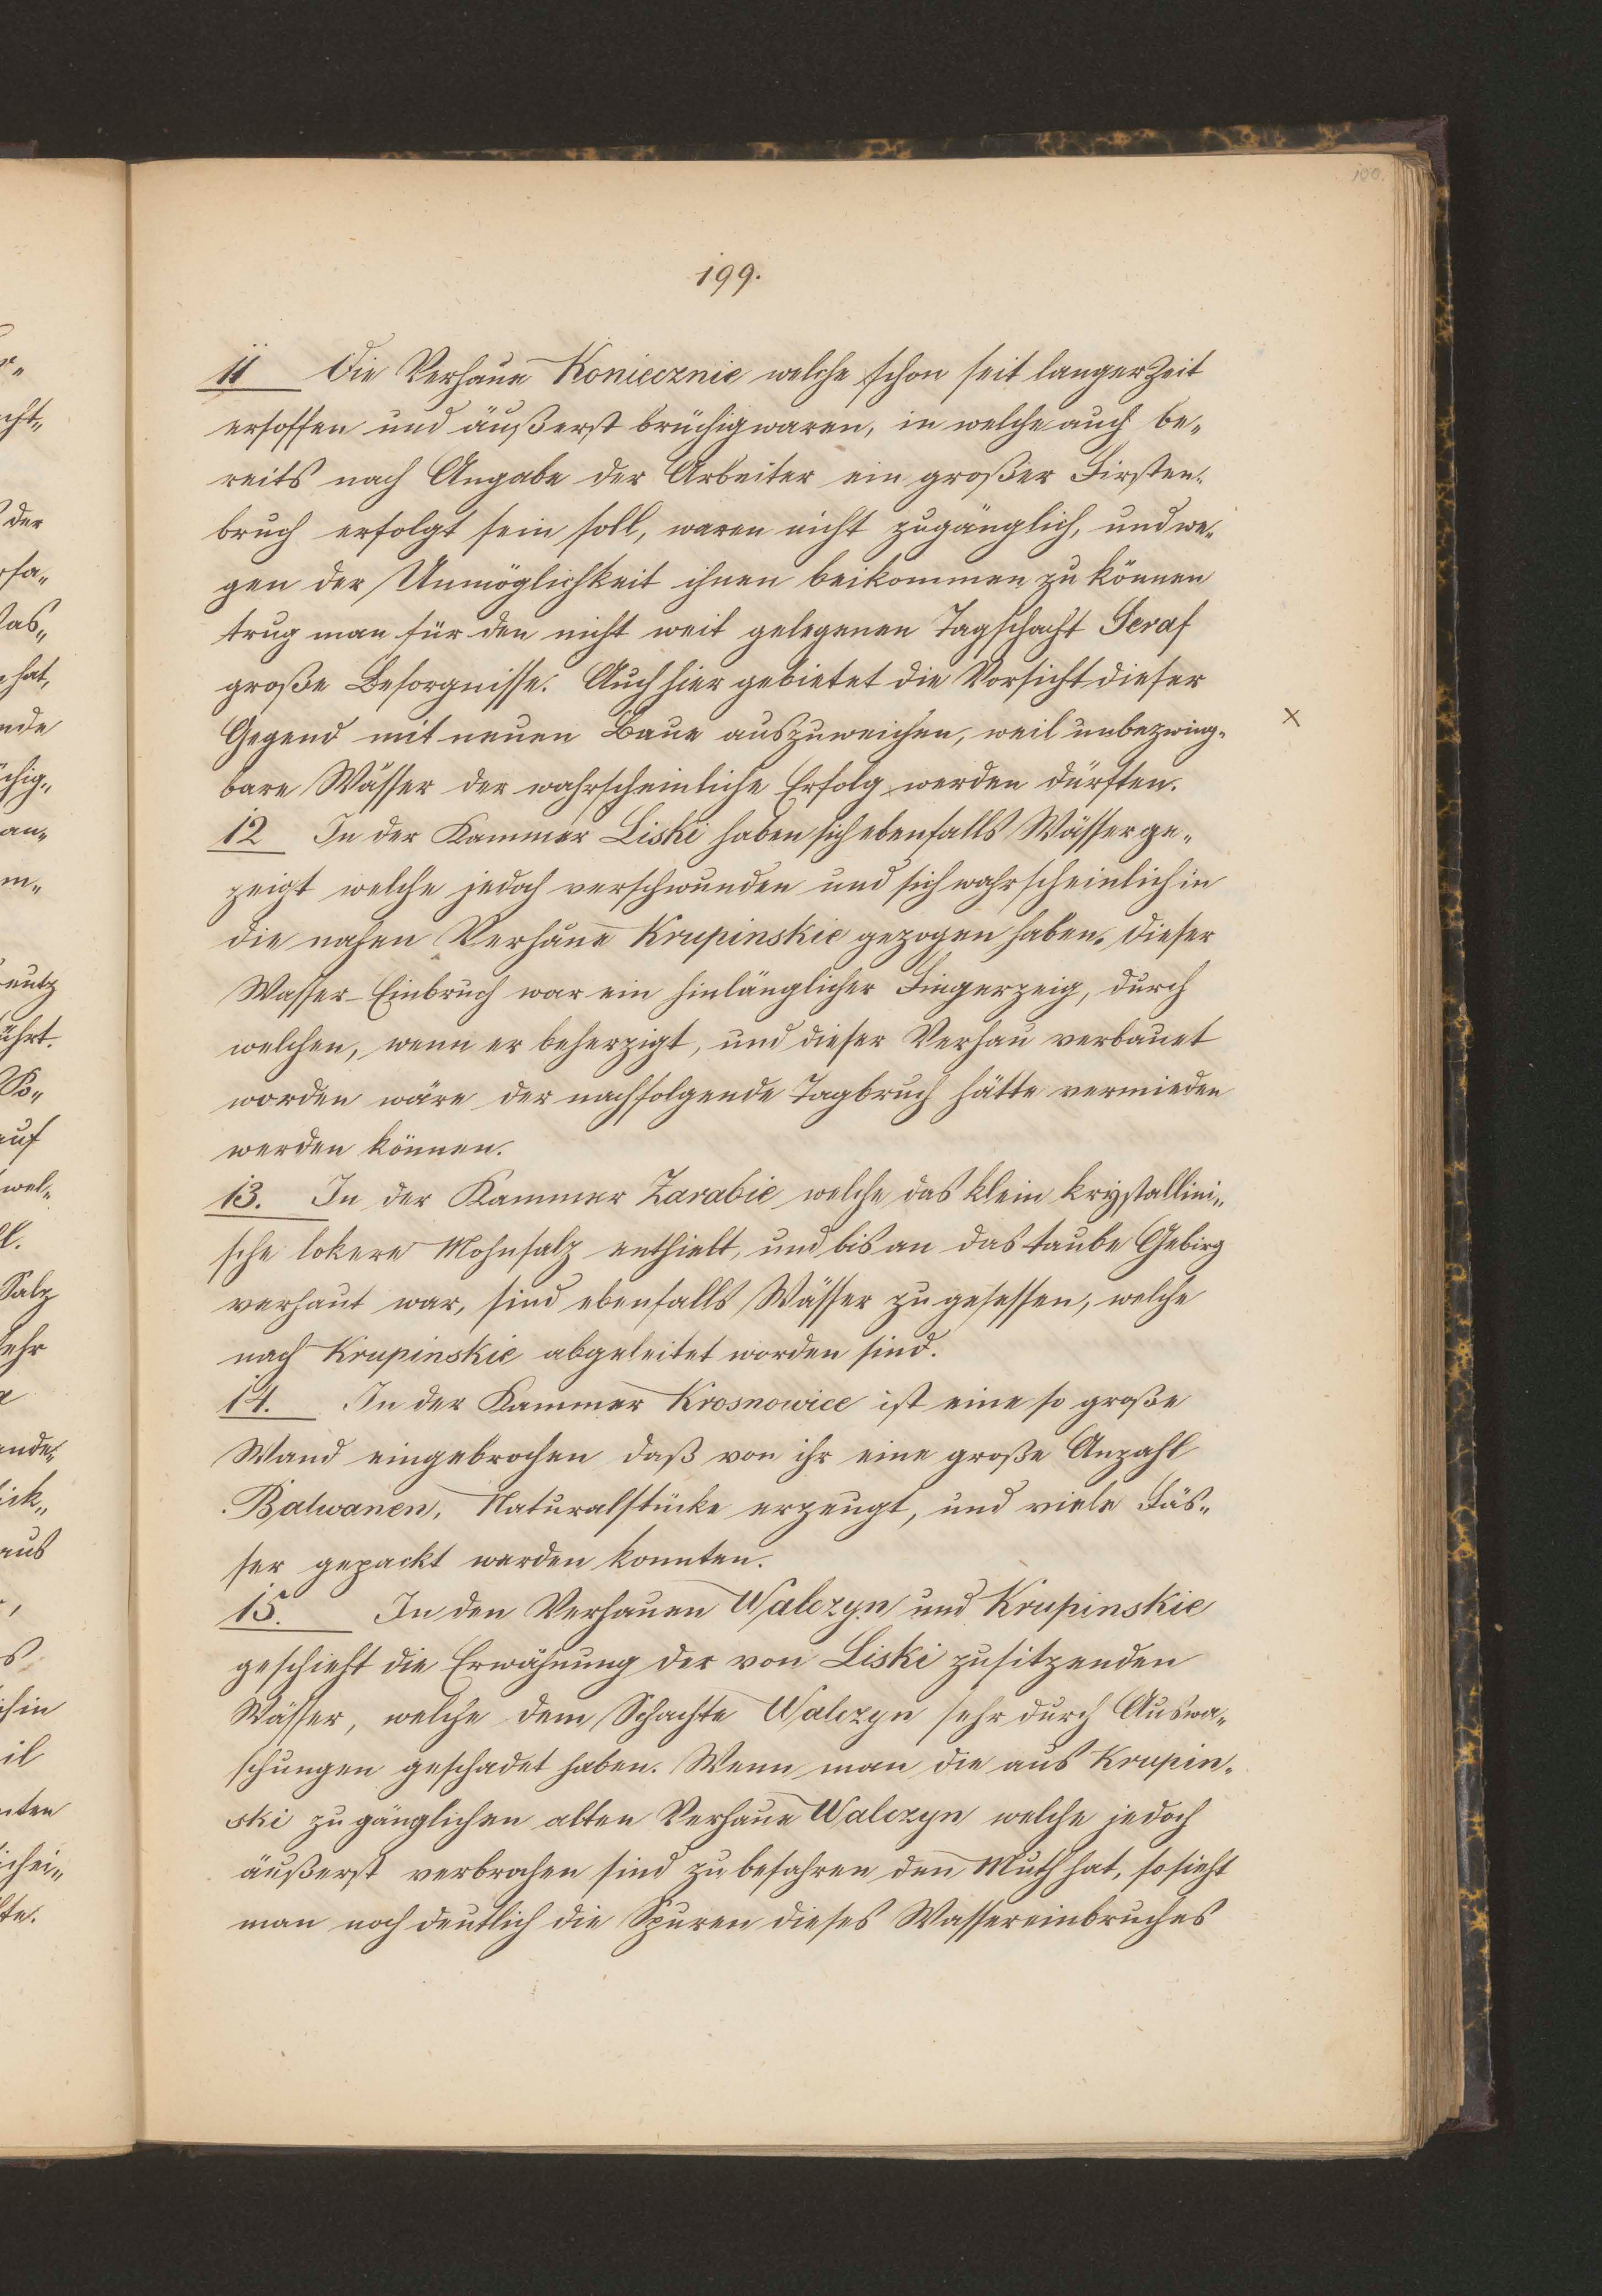 100.
199.
11 Die Verhaue Koniecznie welche schon seit langer Zeit
ersoffen und äußerst brüchig waren, in welche auch be„
reits nach Angabe der Arbeiter ein großer Firsten„
bruch erfolgt sein soll, waren nicht zugänglich, und we„
gen der Unmöglichkeit ihnen beikommen zu können
trug man für den nicht weit gelegenen Tagschacht Seraf
große Besorgnisse. Auch hier gebietet die Vorsicht dieser
Gegend mit neuen Baue auszuweichen, weil unbezwing„
bare Wässer der wahrscheinliche Erfolg werden dürften.
12 In der Kammer Liski haben sich ebenfalls Wässer ge„
zeigt welche jedoch verschwunden und sich wahrscheinlich in
die nahen Verhaue Krupinskie gezogen haben. Dieser
Wasser-Einbruch war ein hinlänglicher Fingerzeig, durch
welchen, wenn er beherzigt, und dieser Verhau verbauet
worden wäre der nachfolgende Tagbruch hätte vermieden
werden können.
13. In der Kammer Zarabie welche das klein krystallini„
sche lokere Mohnsalz enthielt, und bis an das taube Gebirg
verhaut war, sind ebenfalls Wässer zugesessen, welche
nach Krupinskie abgeleitet worden sind.
14. In der Kammer Krosnowice ist eine so große
Wand eingebrochen daß von ihr eine große Anzahl
Balwanen, Naturalstücke erzeugt, und viele Fäs„
ser gepackt werden konnten.
15. In den Verhauen Walczyn und Krupinskie
geschieht die Erwähnung der von Liski zusitzenden
Wässer, welche dem Schachte Walczyn sehr durch Auswa„
schungen geschadet haben. Wenn man die aus Krupin„
ski zugänglichen alten Verhaue Walczyn welche jedoch
äußerst verbrochen sind zu befahren den Muth hat, so sieht
man noch deutlich die Spuren dieses Wassereinbruches